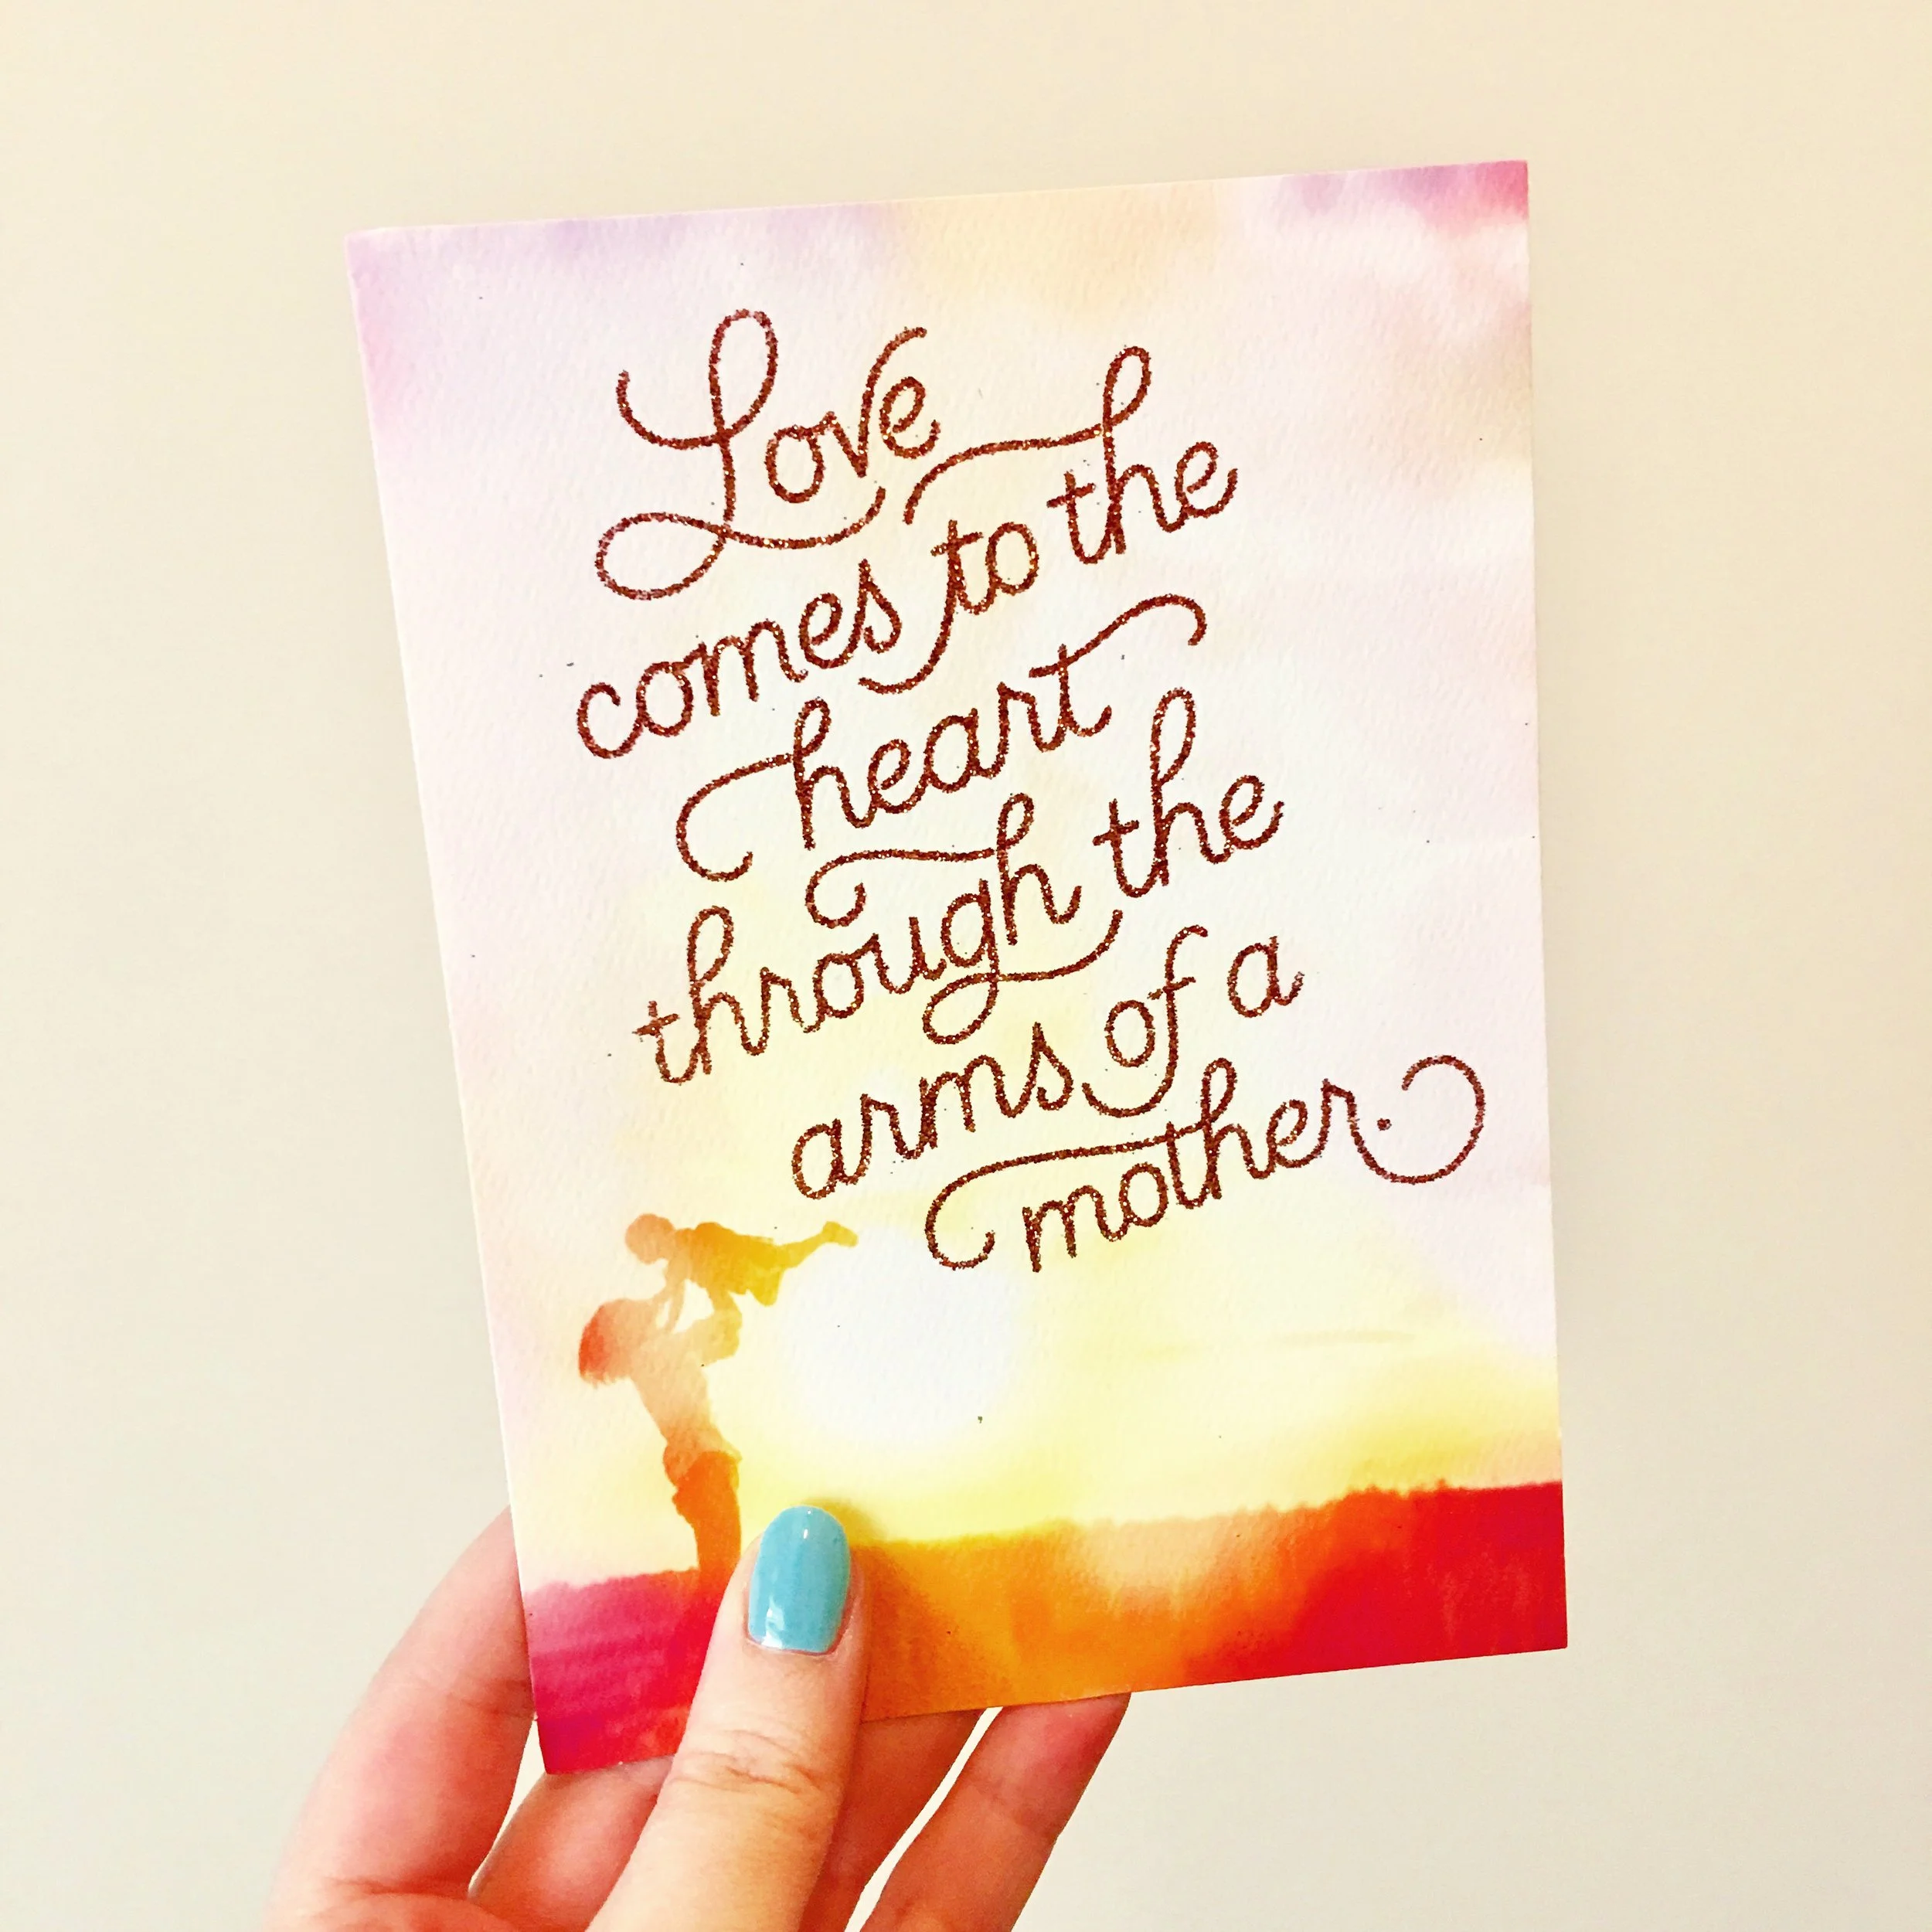 Love
comes to the
heart
through the
arms of a
mother.